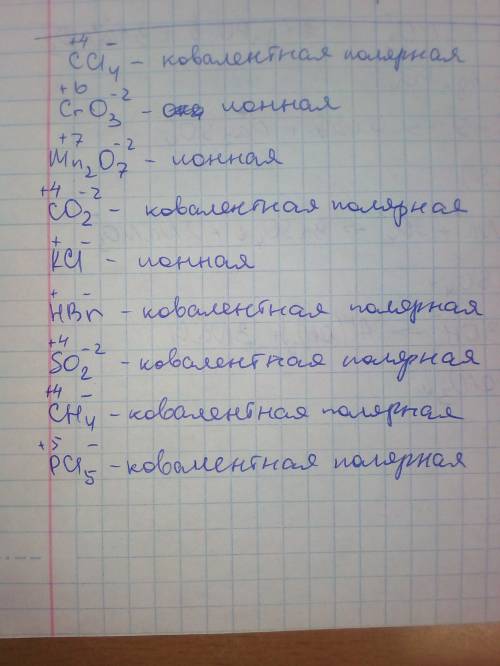 +4 −
CCl4 - ковалентная полярная
+6 −2
CrO3 - ионная
+7 −2
Mn2O7 - ионная
+4 −2
CO2 - ковалентная полярная
+ −
KCl - ионная
+ −
HBr - ковалентная полярная
+4 −2
SO2 - ковалентная полярная
+4 −
CH4 - ковалентная полярная
+5 −
PCl5 - ковалентная полярная